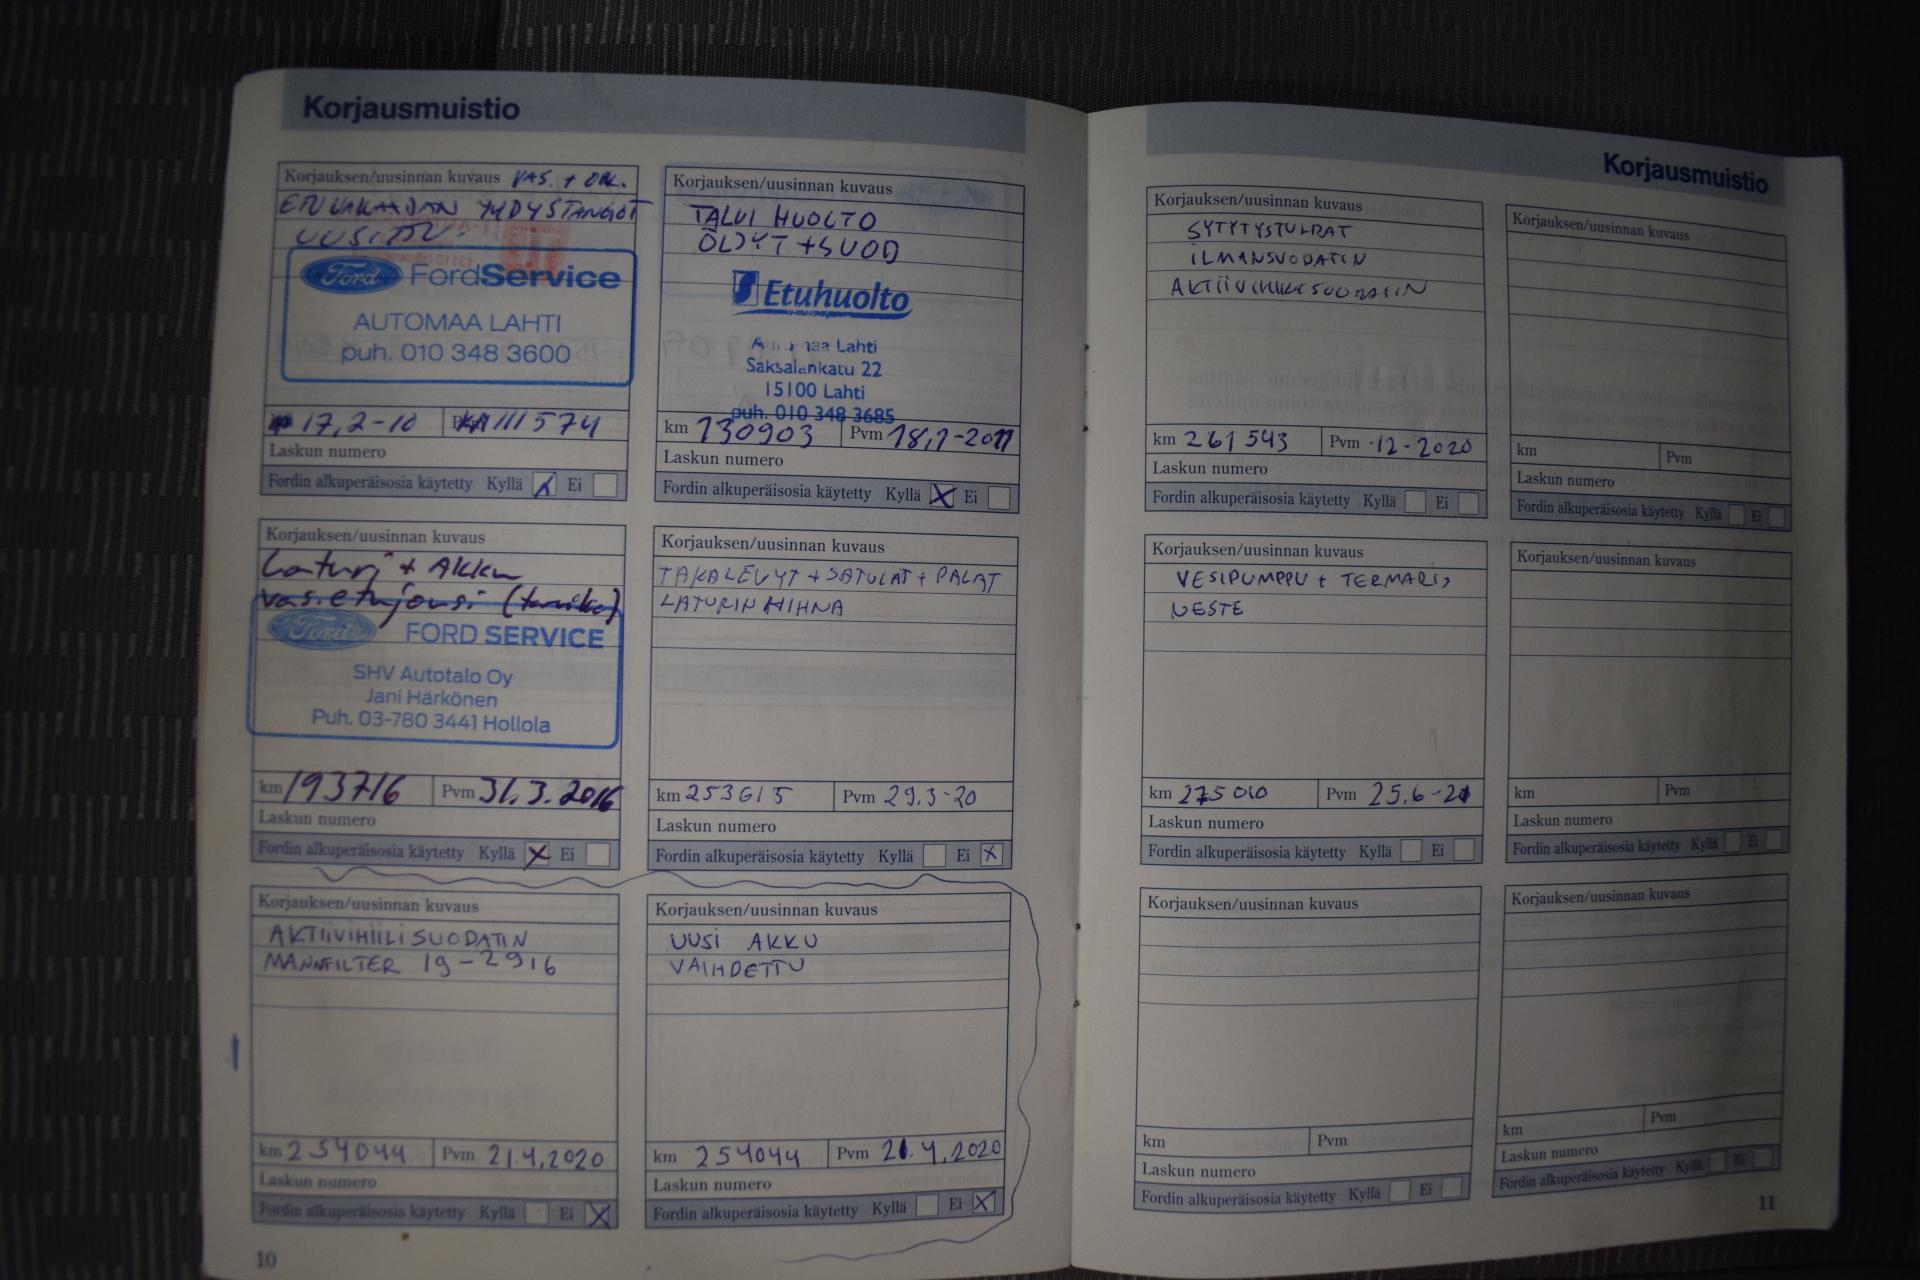 Korjausmuistio
Korjauksen/uusinnan kuvaus VAS. + OIK.
ETUVAKAAJAN YHDYSTANGOT
UUSITTU.
Ford FordService
AUTOMAA LAHTI
puh. 010 348 3600
17,2-10 111574
Laskun numero
Fordin alkuperäisosia käytetty Kyllä Ei
Korjauksen/uusinnan kuvaus
TALVI HUOLTO
ÖLJYT + SUOD
Etuhuolto
Lahti
Saksalankatu 22
15100 Lahti
puh. 010 348 3685
km 130903 Pvm 18,1-2011
Laskun numero
Fordin alkuperäisosia käytetty Kyllä X Ei
Korjauksen/uusinnan kuvaus
Laturi + AKKU
vas.etujousi (tarvike)
Ford FORD SERVICE
SHV Autotalo Oy
Jani Härkönen
Puh. 03-780 3441 Hollola
km 193716 Pvm 31.3.2016
Laskun numero
Fordin alkuperäisosia käytetty Kyllä X Ei
Korjauksen/uusinnan kuvaus
TAKALEVYT + SATULAT + PALAT
LATURIN HIHNA
km 253615 Pvm 29.3-20
Laskun numero
Fordin alkuperäisosia käytetty Kyllä Ei X
Korjauksen/uusinnan kuvaus
AKTIIVIHIILISUODATIN
MANNFILTER 19-2916
km 254044 Pvm 21.4,2020
Laskun numero
Fordin alkuperäisosia käytetty Kyllä Ei X
Korjauksen/uusinnan kuvaus
UUSI AKKU
VAIHDETTU
km 254044 Pvm 21.4,2020
Laskun numero
Fordin alkuperäisosia käytetty Kyllä Ei X
10
Korjausmuistio
Korjauksen/uusinnan kuvaus
SYTYTYSTULPAT
ILMANSUODATIN
AKTIIVIHIILISUODATIN
km 261543 Pvm 12-2020
Laskun numero
Fordin alkuperäisosia käytetty Kyllä Ei
Korjauksen/uusinnan kuvaus
km Pvm
Laskun numero
Fordin alkuperäisosia käytetty Kyllä Ei
Korjauksen/uusinnan kuvaus
VESIPUMPPU + TERMARI,
NESTE
km 275010 Pvm 25.6-21
Laskun numero
Fordin alkuperäisosia käytetty Kyllä Ei
Korjauksen/uusinnan kuvaus
km Pvm
Laskun numero
Fordin alkuperäisosia käytetty Kyllä Ei
Korjauksen/uusinnan kuvaus
km Pvm
Laskun numero
Fordin alkuperäisosia käytetty Kyllä Ei
Korjauksen/uusinnan kuvaus
km Pvm
Laskun numero
Fordin alkuperäisosia käytetty Kyllä Ei
11